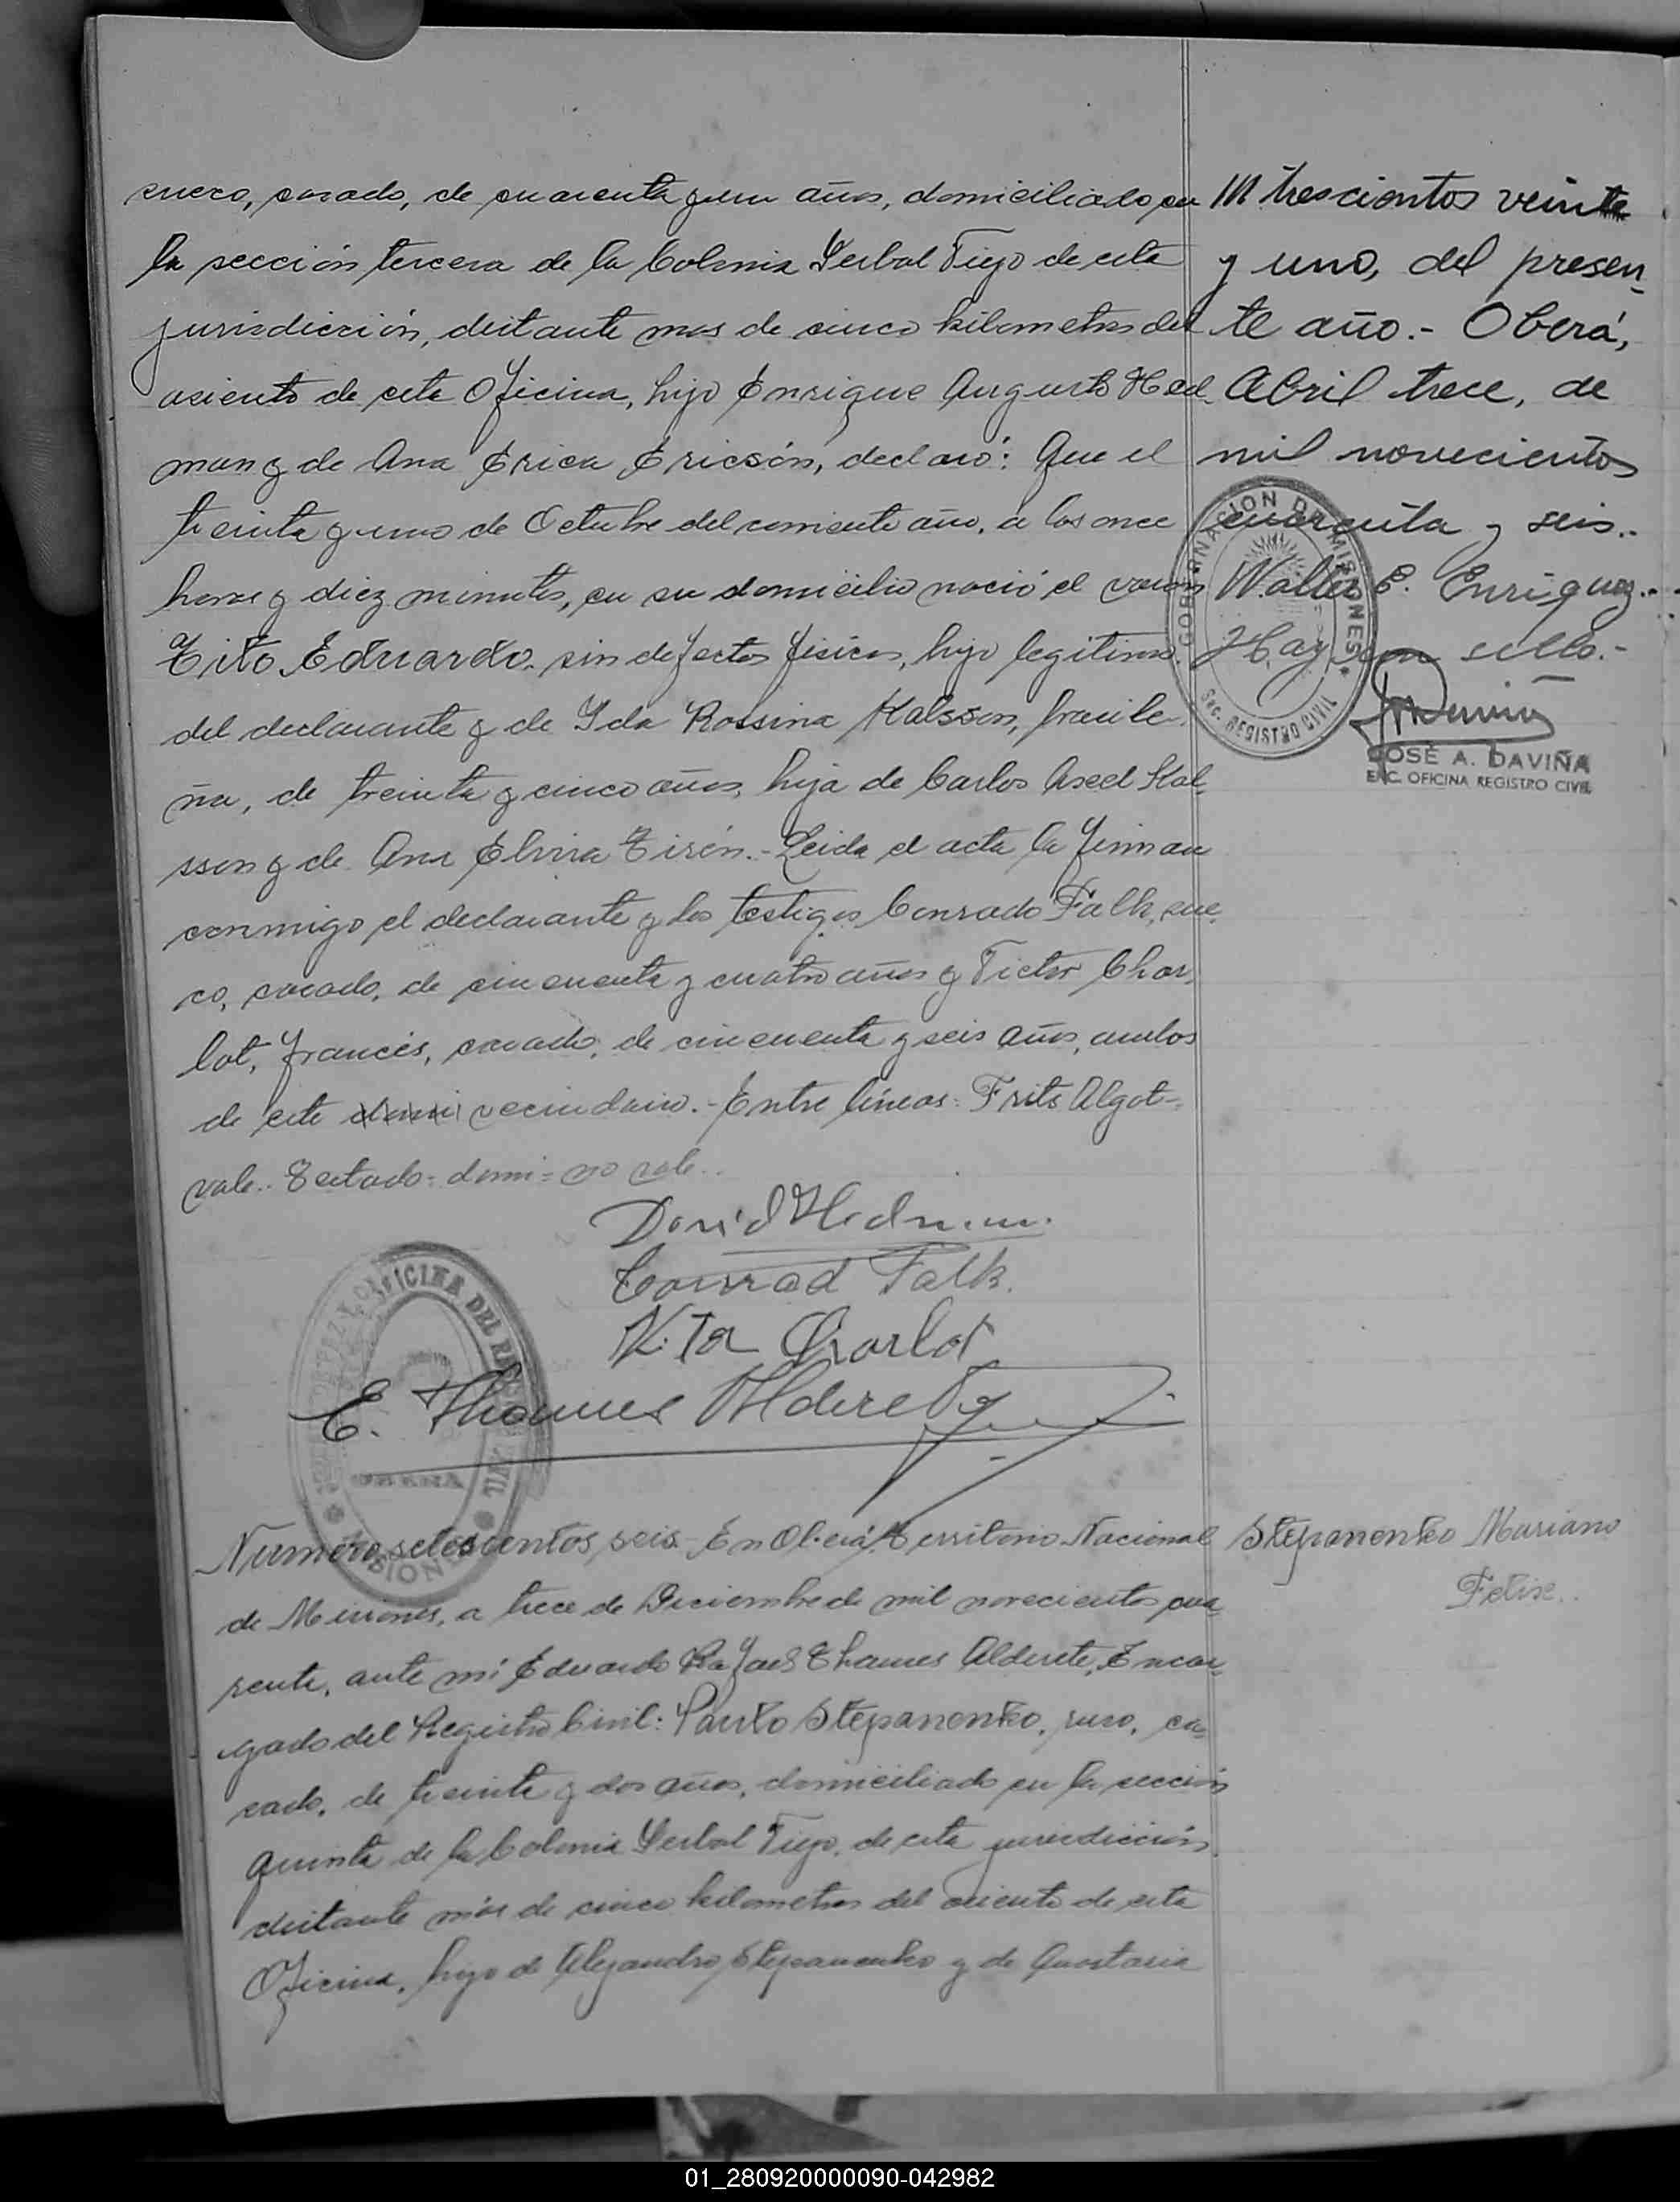 sueco, casado, de cuarenta y un años, domiciliado en
la sección tercera de la Colonia Yerbal Viejo de esta
jurisdicción, distante mas de cinco kilometros del
asiento de esta Oficina, hijo Enrique Augusto Hed-
man y de Ana Erica Ericsón, declaró: Que el
treinta y uno de Octubre del corriente año, a las once
horas y diez minutos, en su domicilio nació el varon
Tito Eduardo, sin defectos fisicos, hijo legitimo
del declarante y de Ida Rossina Kalsson, brasile-
ña, de treinta y cinco años, hija de Carlos Axel Kal-
sson y de Ana Elvira Tirén.- Leida el acta la firman
conmigo el declarante y los testigos Conrado Falk, sue-
co, casado, de cincuenta y cuatro años y Victor Char-
lot, francés, casado, de cincuenta y seis años, ambos
de este domi vecindario.- Entre líneas: Frits Algot-
vale.. Testado: domi = no vale..
David Hedman.
Conrad Falk.
Charlot
E. Thames Alderete
OFICINA DEL REGISTRO CIVIL
MISIONES
Numero setescientos seis- En Oberá, Territorio Nacional
de Misiones, a trece de Diciembre de mil novecientos cua-
renta, ante mí Eduardo Rafael Thames Alderete, Encar-
gado del Registro Civil: Pablo Stepanenko, ruso, ca-
sado, de treinta y dos años, domiciliado en la sección
quinta de la Colonia Yerbal Viejo, de esta jurisdicción,
distante más de cinco kilometros del asiento de esta
Oficina, hijo de Alejandro Stepanenko y de Anastasia
trescientos veinte
y uno, del presen-
te año.- Oberá,
Abril trece, de
mil novecientos
cuarenta y seis.-
Walter E. Enriquez.-
Hay un sello.-
GOBERNACION DE MISIONES
SEC. REGISTRO CIVIL
JOSÉ A. DAVIÑA
ENC. OFICINA REGISTRO CIVIL
Stepanenko Mariano
Felix..
01_280920000090-042982